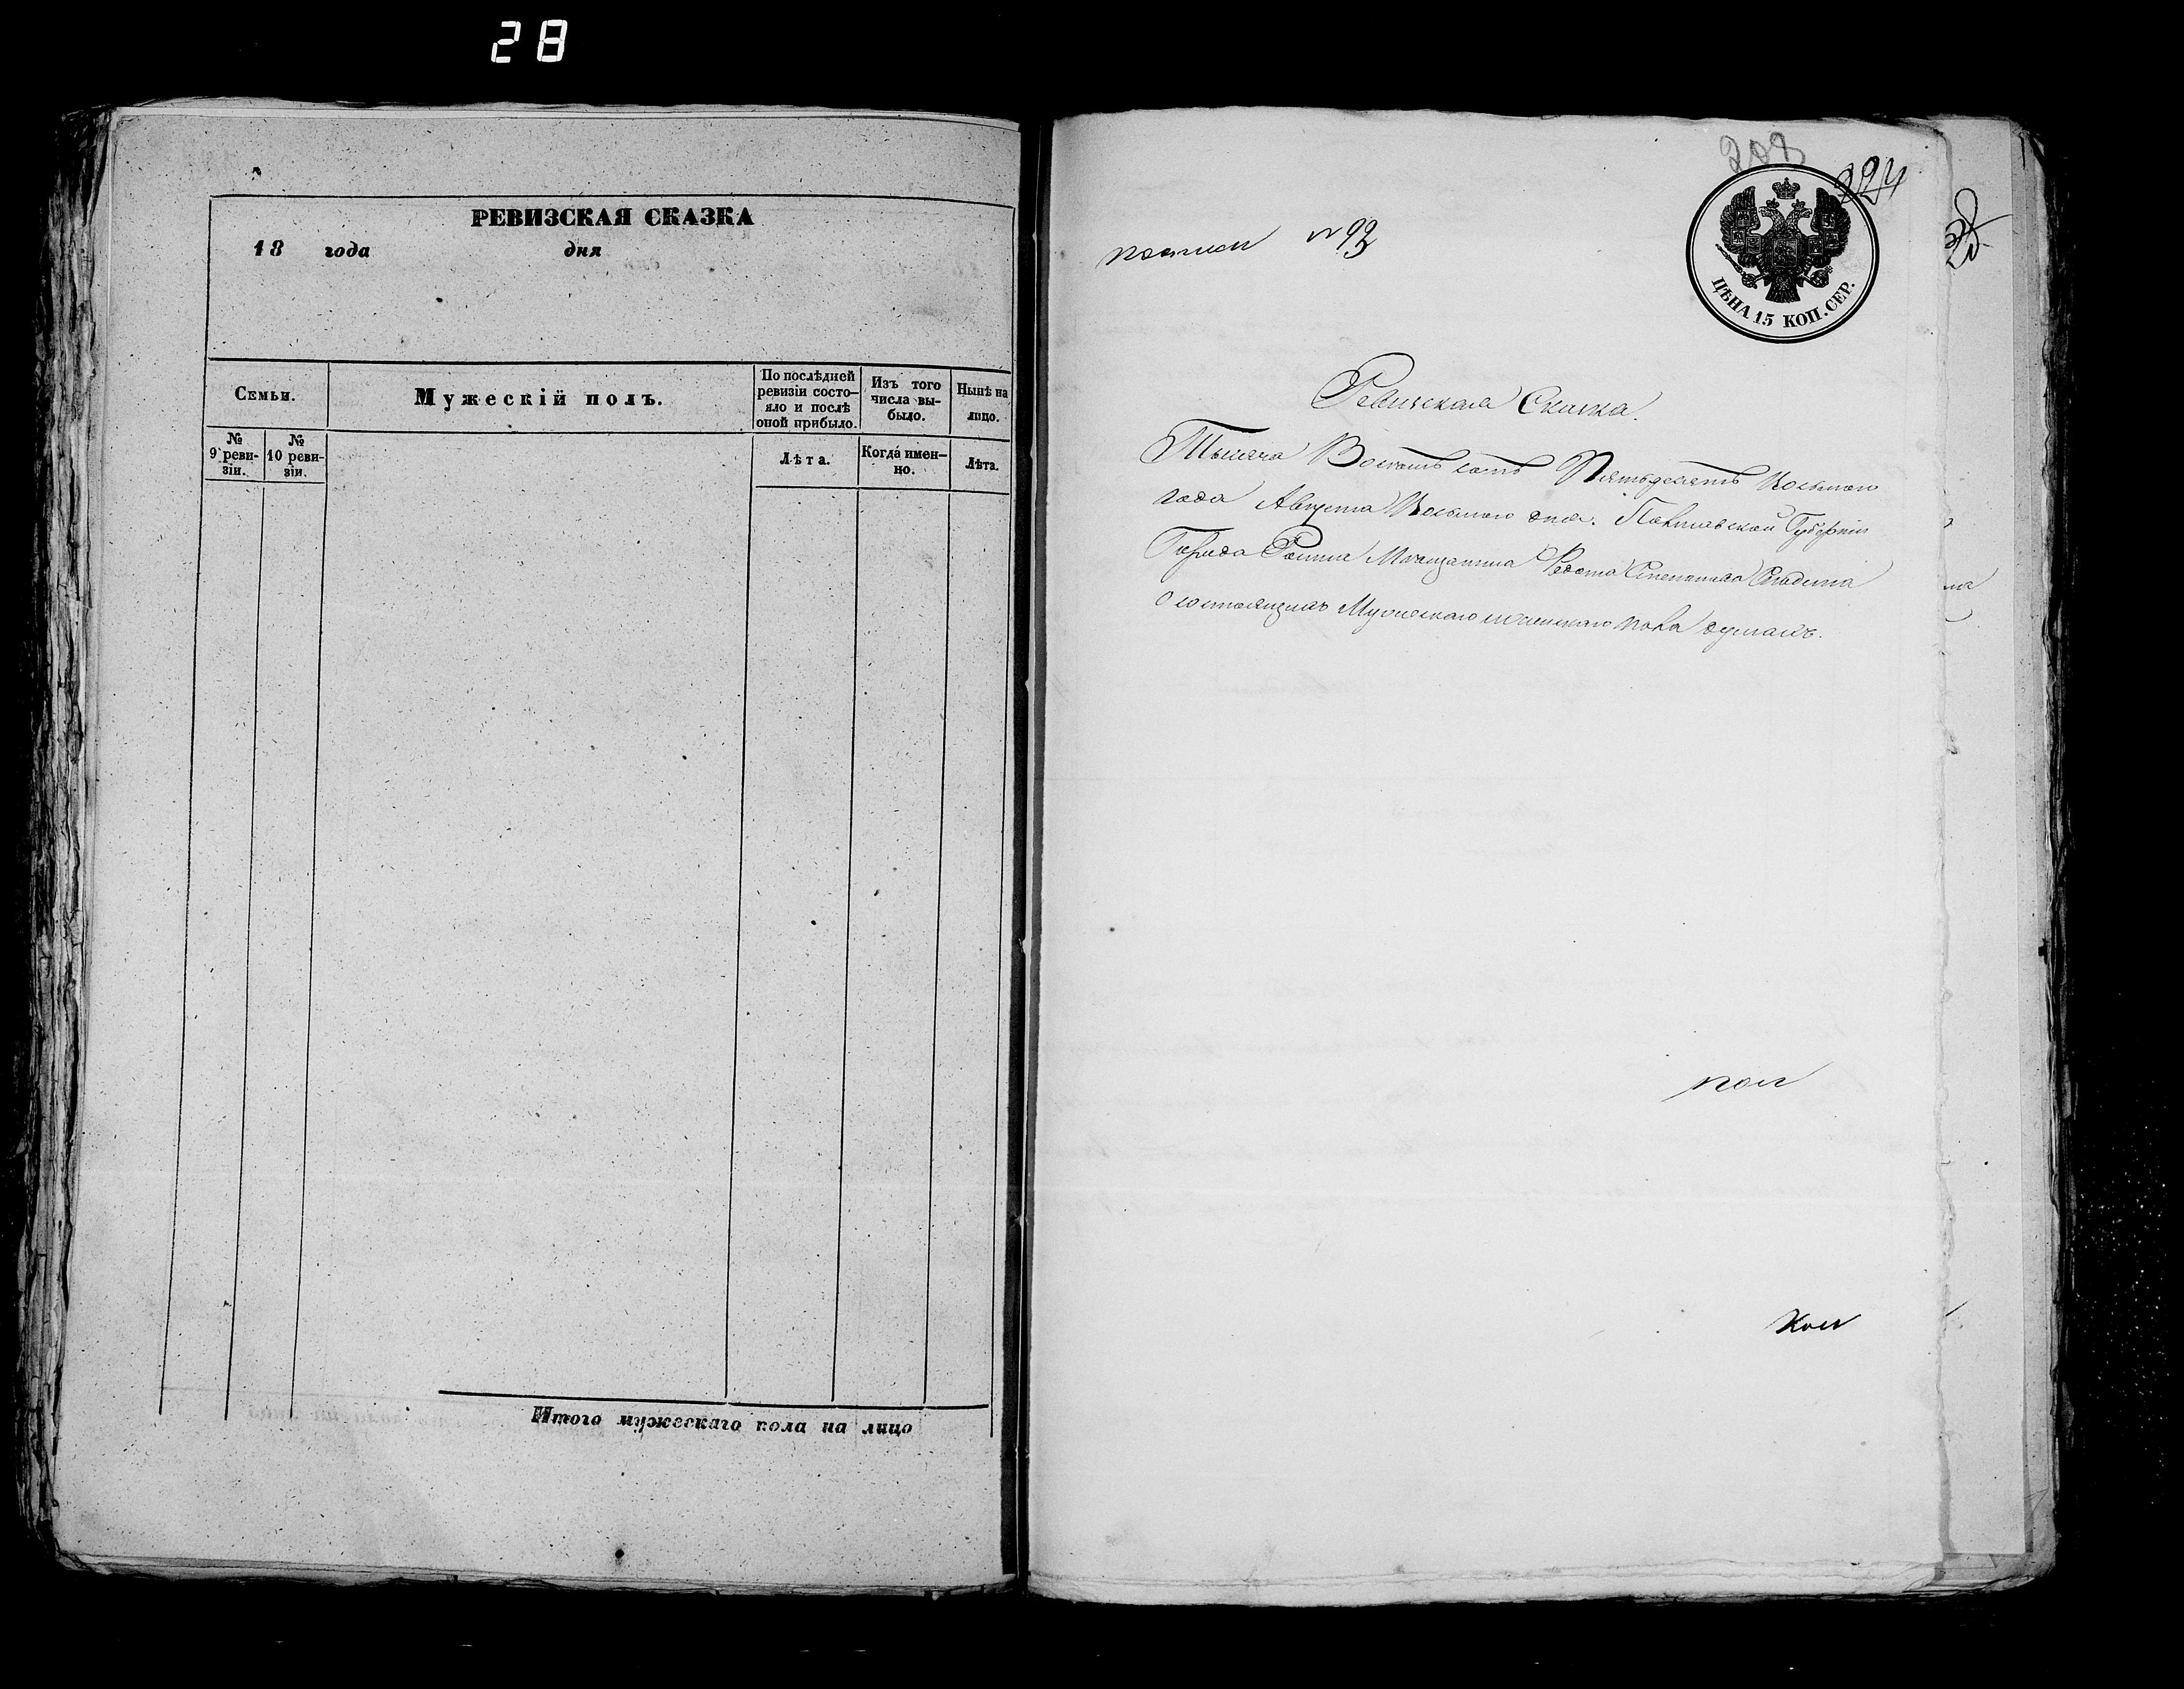 28
РЕВИЗСКАЯ СКАЗКА
18 года дня
Семьи.
Мужескій полъ.
По послѣдней
ревизіи состо-
яло и послѣ
оной прибыло.
Изъ того
числа вы-
было.
Нынѣ на
лицо.
№
9 реви-
зіи.
№
10 реви-
зіи.
Лѣта.
Когда имен-
но.
Лѣта.
Итого мужескаго пола на лицо
208
224
№ 93
ЦѢНА 15 КОП. СЕР.
Ревизская Сказка.
Тысяча Восемь сотъ Пятьдесятъ Восьмого
года Августа Восьмого дня. Полтавской Губерніи
Города Мѣщанина Федота
О состоящихъ Мужескаго и женскаго пола душахъ.